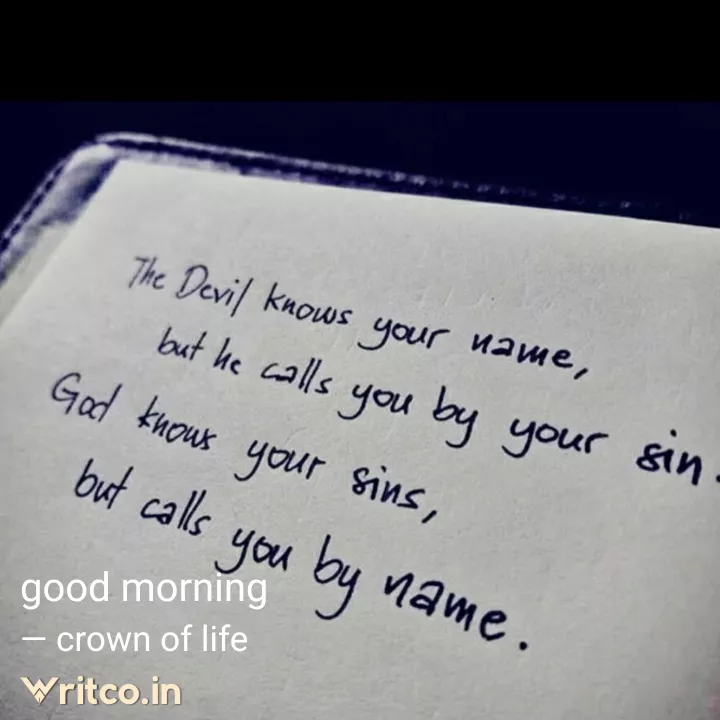 The Devil knows your name,
but he calls you by your sin.
God knows your sins,
but calls you by name.
good morning
— crown of life
Writco.in